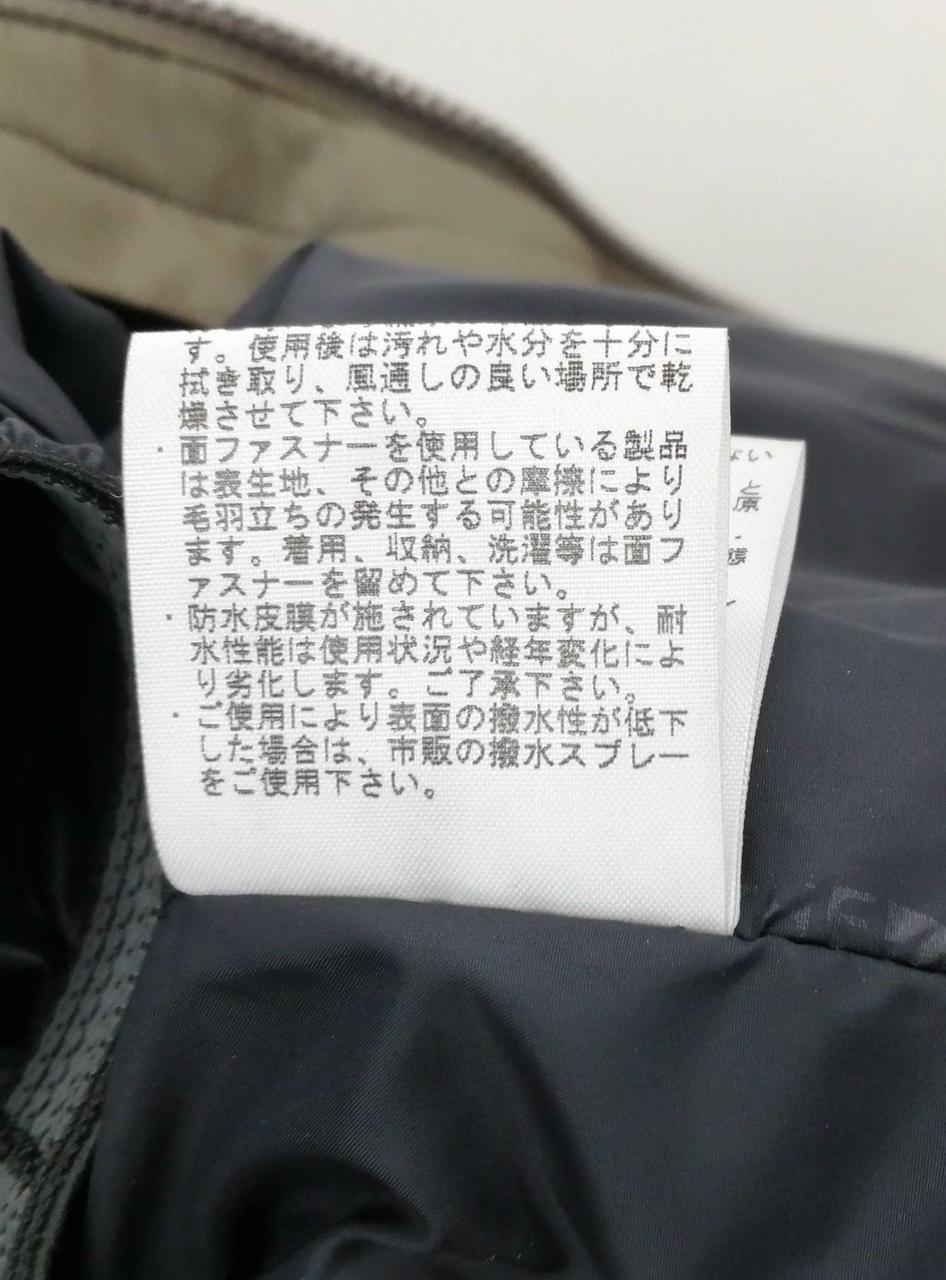 す。使用後は汚れや水分を十分に
拭き取り、風通しの良い場所で乾
燥させて下さい。
・面ファスナーを使用している製品
は表生地、その他との摩擦により
毛羽立ちの発生する可能性があり
ます。着用、収納、洗濯等は面フ
ァスナーを留めて下さい。
・防水皮膜が施されていますが、耐
水性能は使用状況や経年変化によ
り劣化します。ご了承下さい。
・ご使用により表面の撥水性が低下
した場合は、市販の撥水スプレー
をご使用下さい。
ない
と
原